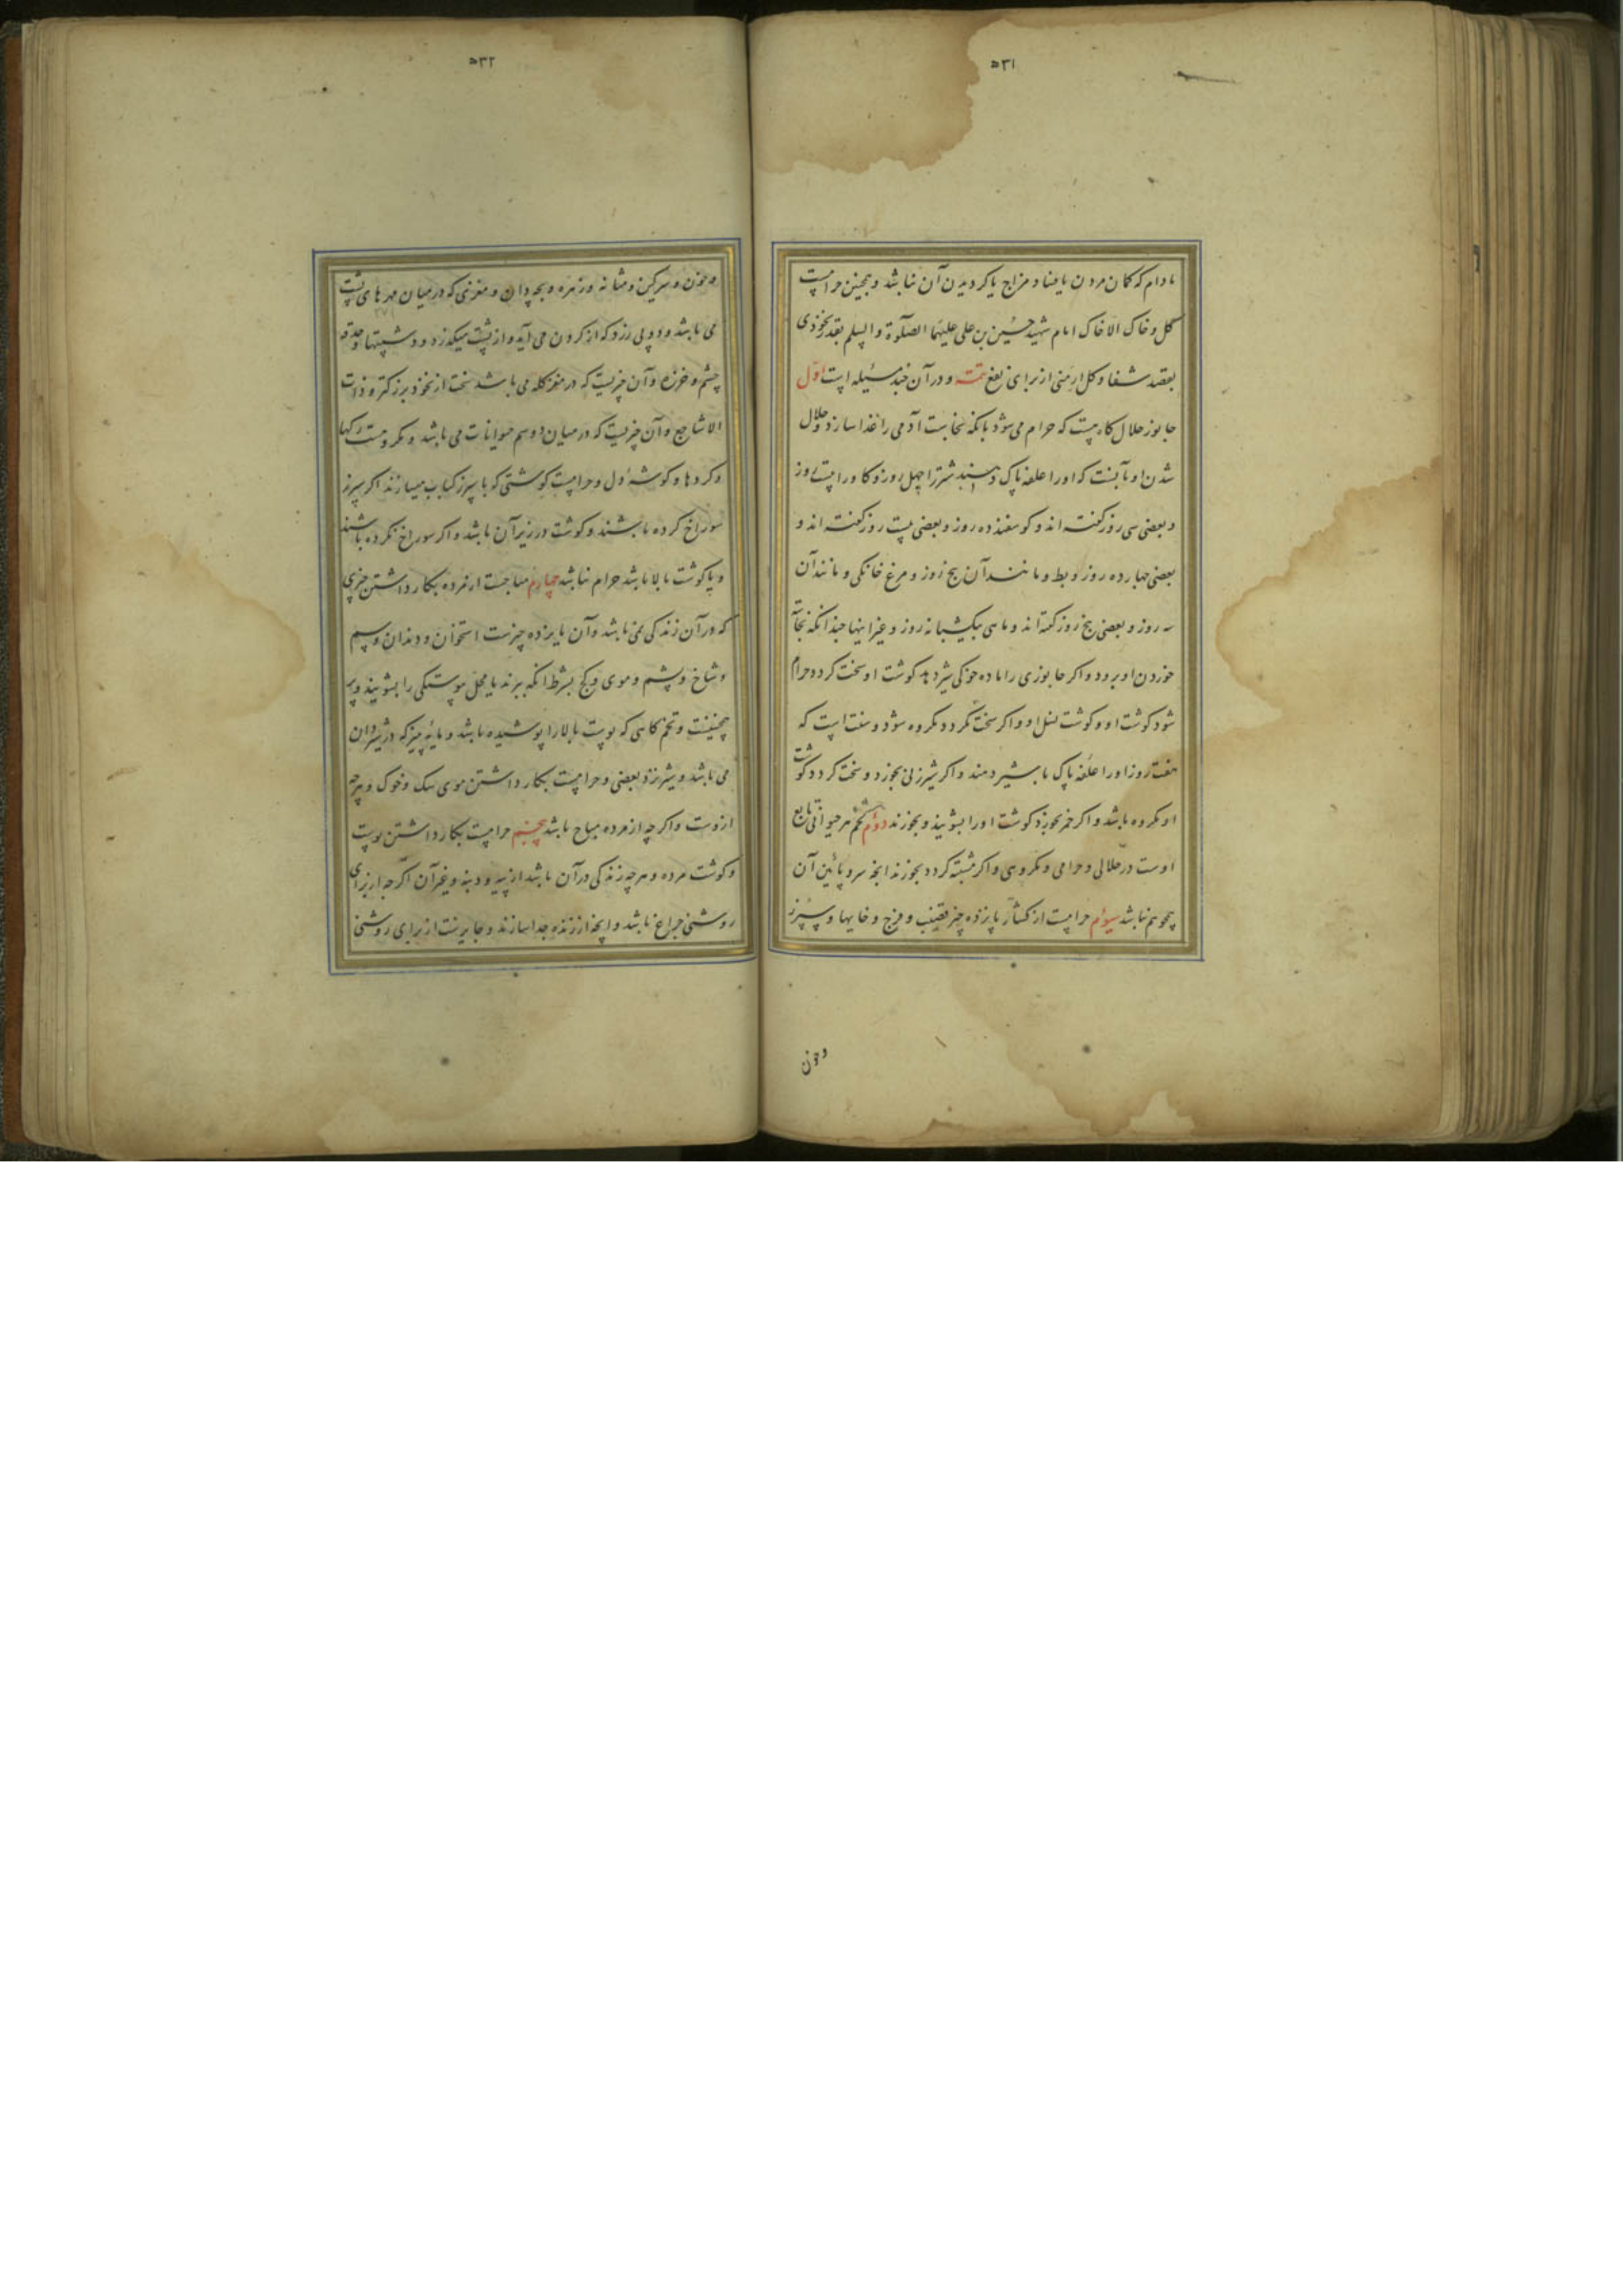 ۵۳۱
مادام که کمان مردن یا فساد مزاج یا کردیدن آن نباشد و همچنین حرامست
کل و خاک الا خاک امام شهید حسین بن علی علیهما الصلوة والسلم بقدر نخودی
بقصد شفا و کل ارمنی از برای نفع تتمه و در آن چند مسئله است اول
جانور حلال کاه هست که حرام می شود بانکه نجاست آدمی را غذا سازد و حلال
شدن او بآنست که او را علف پاک دهند شتر را چهل روز و کاو را بیست روز
و بعضی سی روز کفته اند و کوسفند ده روز و بعضی بیست روز کفته اند و
بعضی چهارده روز و بط و مانند آن پنج روز و مرغ خانکی و مانند آن
سه روز و بعضی پنج روز کفته اند و ماهی یکشبانه روز و غیر اینها چندانکه نجاست
خوردن او برود و اکر جانوری را ماده خوکی شیر دهد کوشت او سخت کردد حرام
شود کوشت او و کوشت نسل او و اکر سخت نکردد مکروه شود و سنت است که
هفت روز او را علف پاک یا شیر دهند و اکر شیر زنی بخورد و سخت کردد کوشت
او مکروه باشد و اکر خمر بخورد کوشت او را بشویند و بخورند دوم تخم هر حیوانی تابع
اوست در حلالی و حرامی و مکروهی و اکر مشتبه کردد بخورند انچه سر و پائین آن
همچو هم نباشد سیوم حرامست از کشتار پانزده چیز قضیب و فرج و خایها و سپرز
و خون
۵۳۲
و خون و سرکین و مثانه و زهره و بچه دان و مغزی که در میان مهرهای پشت
می باشد و دو پی زرد که از کردن می آید و از پشت میکذرد و دشپیتها و حدقه
چشم و خرزه و آن چیزیست که در مغز کله می باشد سخت از نخود بزرکتر و ذات
الاشاجع و آن چیزیست که در میان دو سم حیوانات می باشد و مکروهست رکها
و کرده‌ا و کوشه دل و حرامست کوشتی که با سپرز کباب میسازند اکر سپرز
سوراخ کرده باشند و کوشت در زیر آن باشد و اکر سوراخ نکرده باشند
و یا کوشت بالا باشد حرام نباشد چهارم مباحست از مرده بکار داشتن چیزی
که در آن زندکی نمی باشد و آن یازده چیزست استخوان و دندان و سم
و شاخ و پشم و موی و کج بشرط انکه ببرند یا محل پوستکی را بشویند و پر
همچنینست و تخم کاهی که پوست بالا را پوشیده باشد و مایه پنیر که در شیردان
می باشد و شیر نزد بعضی و حرامست بکار داشتن موی سک و خوک و هر چه
ازوست و اکر چه از مرده مباح باشد پنجم حرامست بکار داشتن پوست
و کوشت مرده و هر چه زندکی در آن باشد از پیه و دنبه و غیر آن اکر چه از برای
روشنی چراغ باشد و انچه از زنده جدا سازند و جایز نیست از برای روشنی